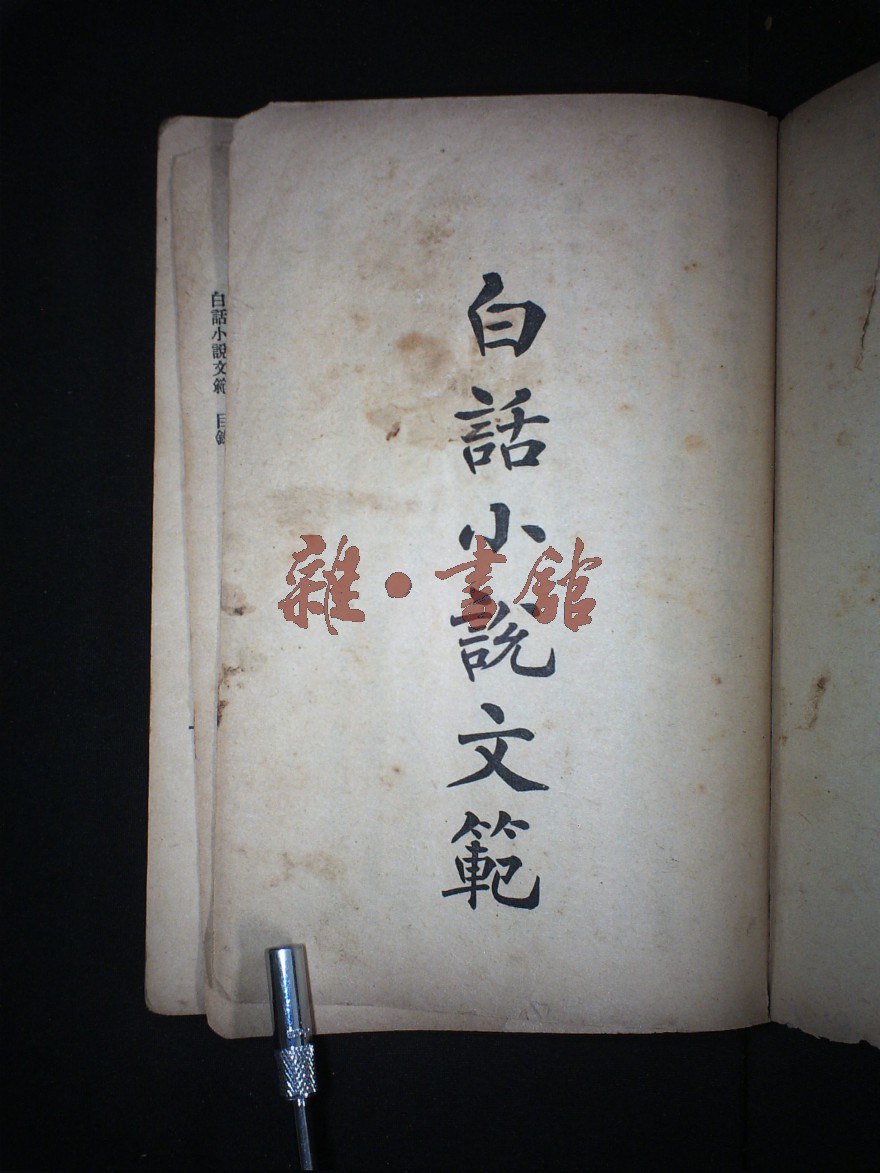 白話小說文範
白話小說文範 目錄
雜·書館